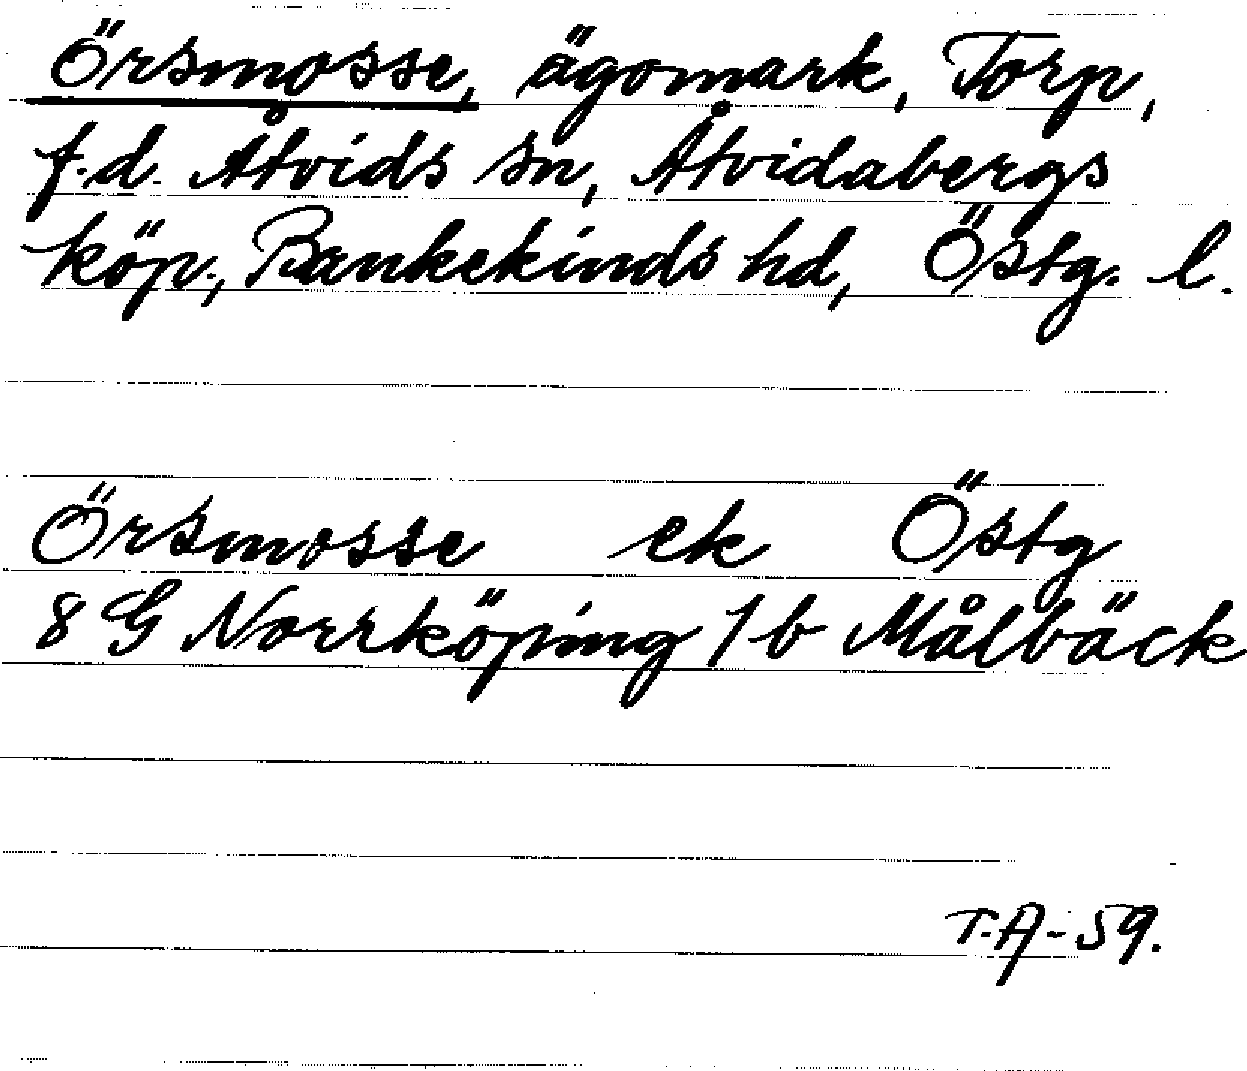 Örsmosse, ägomark, Torp,
f.d. Åtvids sn, Åtvidabergs
köp., Bankekinds hd, Östg. l.
Örsmosse ek Östg
8 G Norrköping 1 b Målbäck
T.A-59.